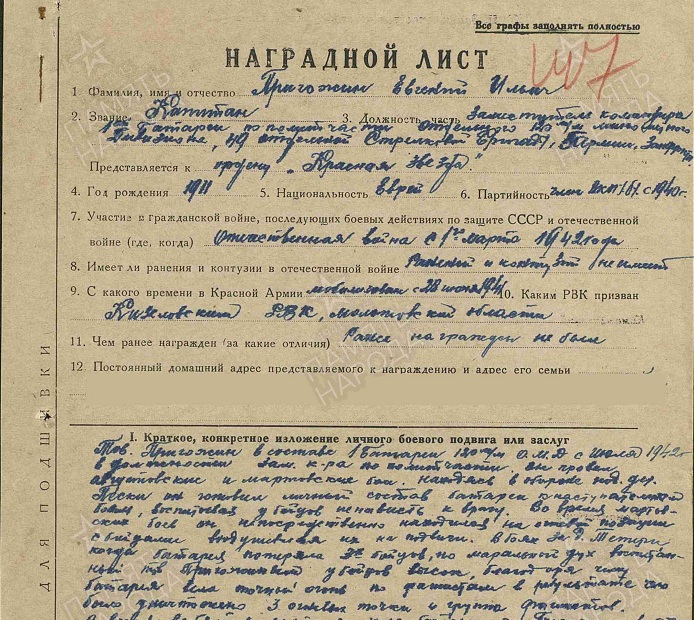 Все графы заполнять полностью
НАГРАДНОЙ ЛИСТ
1007
1 Фамилия, имя и отчество Пригожин Евгений Ильич
2. Звание Капитан 3. Должность, часть Заместитель командира
1ой батареи по политчасти отдельного 120 м/м минометного
Дивизиона, 49 отдельной Стрелковой Бригады,
Представляется к ордену "Красная звезда"
4. Год рождения 1911 5. Национальность Еврей 6. Партийность член ВКП/б/ с 1940г.
7. Участие в гражданской войне, последующих боевых действиях по защите СССР и отечественной
войне (где, когда) Отечественная война с 1го марта 1942 года
8. Имеет ли ранения и контузии в отечественной войне Ранений и контузий не имеет
9. С какого времени в Красной Армии мобилизован с 28 июня 1941 10. Каким РВК призван
Кизеловский РВК, Молотовской области
11. Чем ранее награжден (за какие отличия) Ранее награжден не был
12. Постоянный домашний адрес представляемого к награждению и адрес его семьи
I. Краткое, конкретное изложение личного боевого подвига или заслуг
Тов. Пригожин в составе 1 батареи 120 м/м О.М.Д с июля 1942г
в должности Зам. к-ра по политчасти, он провел
августовские и мартовские бои. Находясь в обороне под. дер.
Пески он готовил личный состав батареи к наступательным
боям, воспитывая у бойцов ненависть к врагу. Во время мартов-
ских боев он непосредственно находился на огневой позиции
с бойцами воодушевляя их на подвиги. В боях за д.
когда батарея потеряла бойцов, но моральный дух воспитан-
ный тов Пригожиным у бойцов высок, благодаря чему
батарея вела точный огонь по фашистам в результате чего
было уничтожено 3 огневых точки и группа фашистов.
ДЛЯ ПОДШИВКИ
ПАМЯТЬ НАРОДА